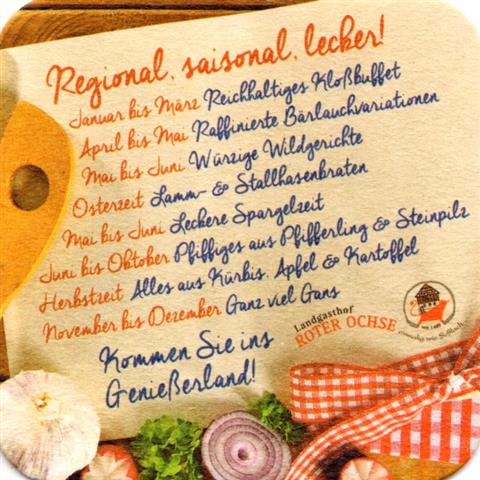 Regional, saisonal, lecker!
Januar bis März Reichhaltiges Kloßbuffet
April bis Mai Raffinierte Bärlauchvariationen
Mai bis Juni Würzige Wildgerichte
Osterzeit Lamm- & Stallhasenbraten
Mai bis Juni Leckere Spargelzeit
Juni bis Oktober Pfiffiges aus Pfifferling & Steinpilz
Herbstzeit Alles aus Kürbis, Apfel & Kartoffel
November bis Dezember Ganz viel Gans
Kommen Sie ins
Genießerland!
Landgasthof
ROTER OCHSE